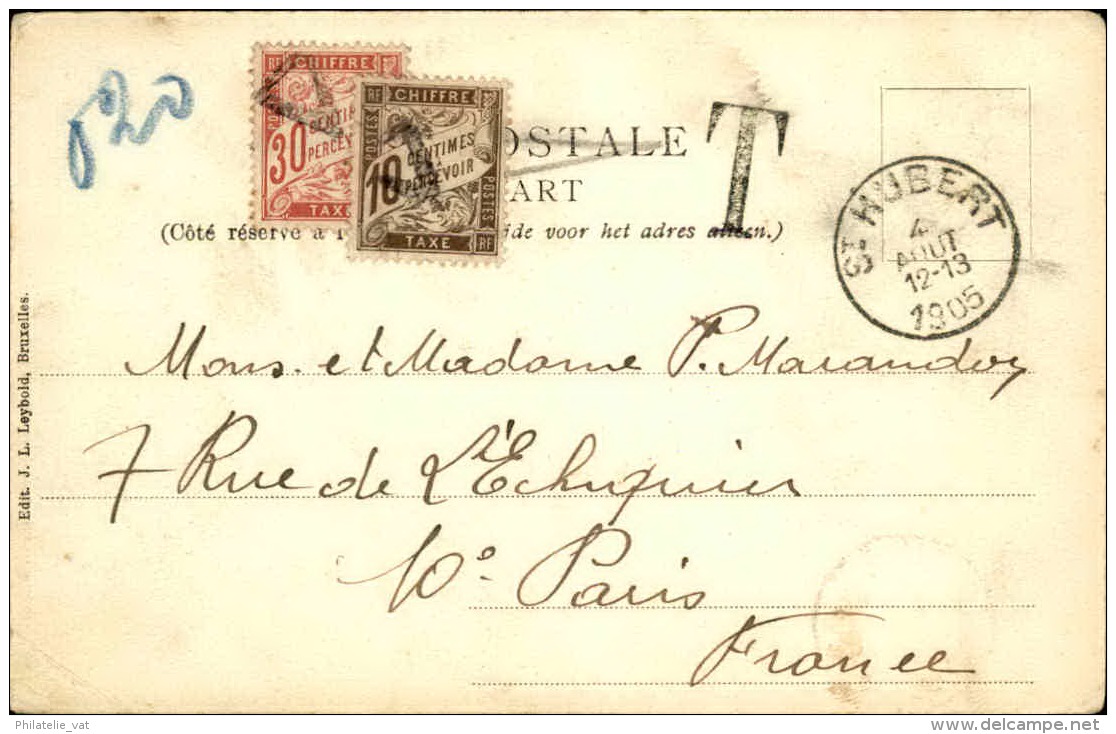 RF CHIFFRE
30 CENTIMES
PERCEV
TAXE
RF CHIFFRE
POSTES
10 CENTIMES
PERCEVOIR
POSTES
TAXE RF
OSTALE
ART
T
(Côté réservé à l ijde voor het adres alleen.)
St HUBERT
4
AOUT
12-13
1905
Mons. et Madame P. Marandon
7 Rue de L'Echiquier
10e Paris
France
Edit. J. L. Leybold, Bruxelles.
Philatelie_vat
www.delcampe.net